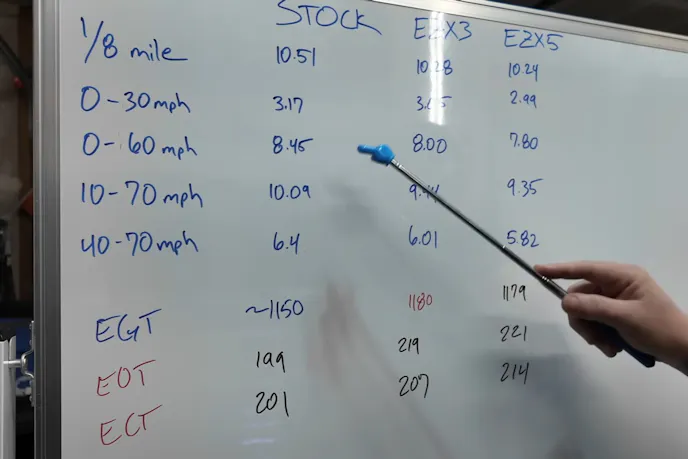 STOCK EZX3 EZX5
1/8 mile 10.51 10.28 10.24
0-30mph 3.17 2.99
0-60mph 8.45 8.00 7.80
10-70mph 10.09 9.35
40-70mph 6.4 6.01 5.82
EGT ~1150 1180 1179
EOT 199 219 221
ECT 201 207 214